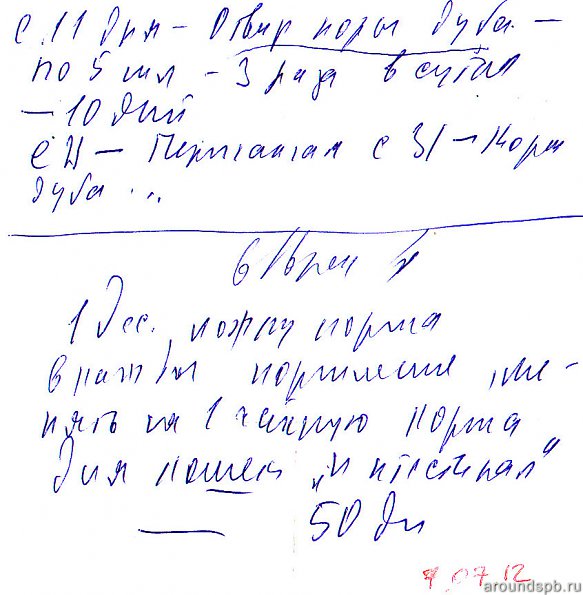 с 11 дня — Отвар коры дуба —
по 5 мл — 3 раза в сутки
— 10 дней
с 21 — Перманган с 31 — Кора
дуба ...
1 дес. ложку корма
в каждое кормление, ме-
нять на 1 чайную корма
для кошек „Интестинал"
— 50 дн
7.07.12
aroundspb.ru